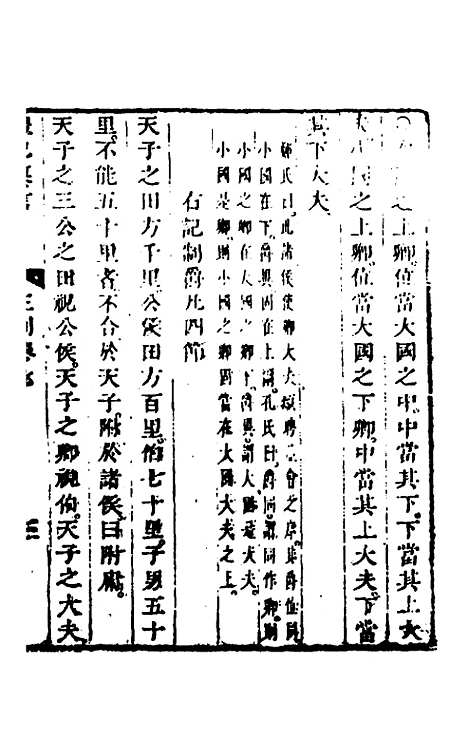 之上卿位當大國之中中當其下下當其上大
夫小國之上卿位當大國之下卿中當其上大夫下當
其下大夫
鄭氏曰此諸侯使卿大夫頫聘並會之序其爵位同
小國在下爵異固在上謂孔氏曰爵同謂同作卿則
小國之卿在大國卿下爵異謂大國是大夫
小國是卿則小國之卿固當在大國大夫之上
右記制爵凡四節
天子之田方千里公侯田方百里伯七十里子男五十
里不能五十里者不合於天子附於諸侯曰附庸
天子之三公之田視公侯天子之卿視伯天子之大夫
禮記 言 王制第五 三